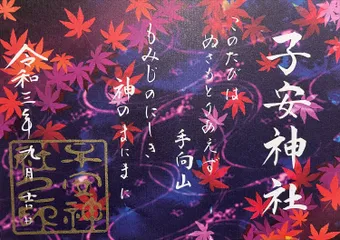 子安神社
このたびは
ぬさもとりあえず
手向山
もみじのにしき
神のまにまに
令和三年九月吉日